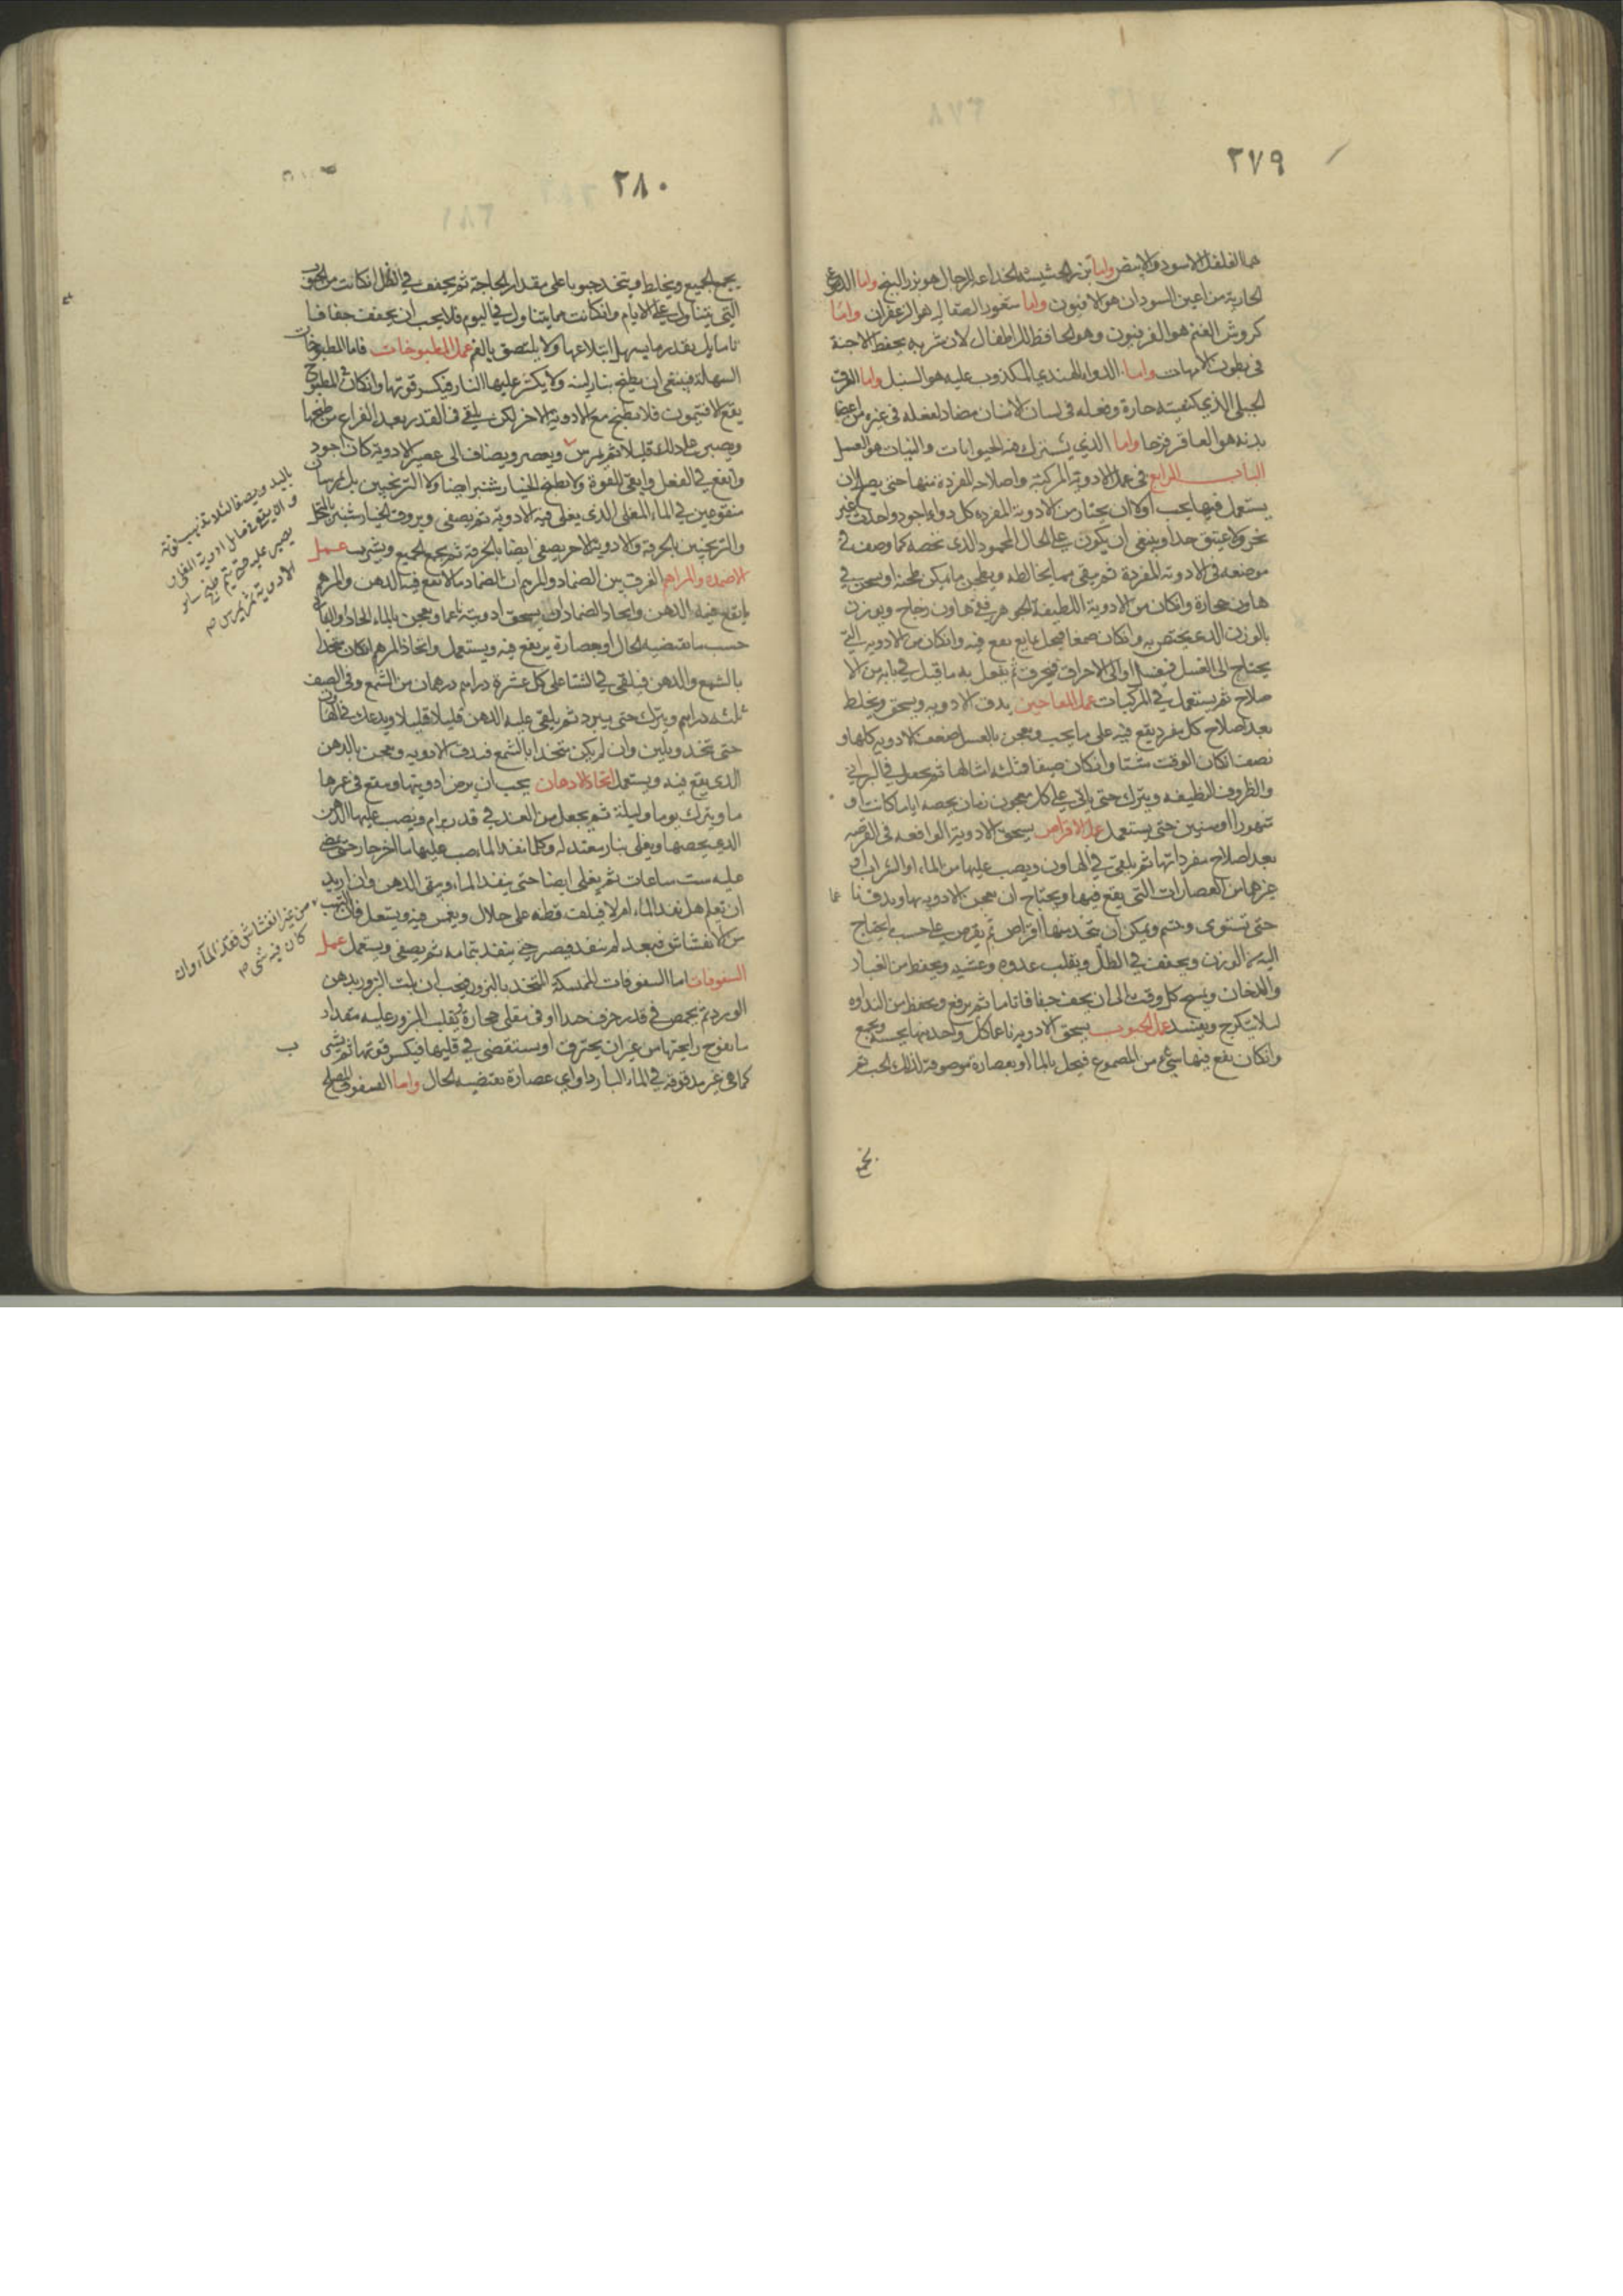 ٢٧٩
هما الفلفل الاسود والابيض واما بزر الحشيشة الخداعة للرجال هو بزر البنج واما الدموع
الجارية من اعين السودان هو الافيون واما شعور الصقالبه هو الزعفران واما
كروش الغنم هو الفربيون وهو الحافظ للاطفال لان شربه يحفظ الاجنة
فى بطون الامهات واما الدواء الهندي المكذوب عليه هو السنبل واما القرن
الجبلي الذي كيفيته حارة وفعله فى لسان الانسان مضاد لفعله فى غيره من اعضا
بدنه هو العاقر قرحا واما الذي يشترك فيه الحيوانات والنبات هو العسل
الباب الرابع فى عمل الادوية المركبة واصلاح المفردة منها حتى يصلح لان
يستعمل فيها يجب اولا ان يختار من الادوية المفرده كل دواء اجود واحدث غير
نخر ولا عتيق جدا وينبغى ان يكون على الحال المحمود الذى نخصه كما وصف فى
موضعه فى الادوية المفردة ثم ينقى مما يخالطه ويطحن ما يمكن طحنه او يسحق فى
هاون حجارة وانكان من الادوية اللطيفة الجوهر ففى هاون زجاج ويوزن
بالوزن الذى يختص به وانكان صمغا فيحل بمايع يقع فيه وانكان من الادويه التي
يحتاج الى الغسل فيغسل او الى الاحراق فيحرق ثم يفعل به ما قيل في بابه من الا
صلاح ثم يستعمل فى المركبات عمل المعاجين يدق الادويه ويسحق ويخلط
بعد اصلاح كل مفرد يقع فيه على ما يجب ويعجن بالعسل ضعف الادويه كلها و
نصف انكان الوقت شتا وانكان صيفا فثلثه امثالها ثم يجعل فى البراني
والظروف النظيفه ويترك حتى ياتي على كل معجون زمان يخصه اياما كانت او
شهورا او سنين حتى يستعمل عمل الاقراص يسحق الادوية الواقعه فى القرصه
بعد اصلاح مفرداتها ثم يلقى فى الهاون ويصب عليها من الماء او الشراب او
غيرهما من العصارات التى يقع فيها ويحتاج ان يعجن الادويه بها ويدق نا
عما
حتى تستوى ويمكن ان تتخذ منها اقراص ثم يقرص على حسب ما يحتاج
اليه من الوزن ويجفف فى الظل ويقلب غدوه وعشيه ويحفظ من الغبار
والدخان ويمسح كل وقت الى ان يجف جفافا تاما ثم يرفع ويحفظ من النداوه
ليلا يتكرج ويفسد عمل الحبوب يسحق الادويه ناعما كل واحد منها بحسبه ويجمع
وانكان يقع فيها شئ من الصموغ فيحل بالماء او بعصارة موصوفة لذلك الحب ثم
يجمع
٢٨٠
يجمع الجميع ويخلط ويتخذ حبوبا على مقدار الحاجة ثم يجفف فى الظل انكانت من الحبوب
التى يتناول على الايام وانكانت مما يتناول فى اليوم فلا يجب ان يجفف جفافا
تاما بل بقدر ما يسهل ابتلاعها ولا يلتصق بالفم عمل المطبوخات فاما المطبوخات
المسهلة فينبغى ان يطبخ بنار لينه ولا يكثر عليها النار فيكسر قوتها وانكان فى المطبوخ
يقع الافتيمون فلا يطبخ مع الادوية الاخر لكن يلقى فى القدر بعد الفراغ من طبخها
ويصبر على ذلك قليلا ثم يمرس ويعصر ويضاف الى عصير الادوية كان اجود
وانفع فى الفعل وابقى للقوة ولا يطبخ الخيار شنبر ايضا ولا الترنجبين بل يمرسان
منقوعين فى الماء المغلى الذى يغلى فيه الادوية ثم يصفى ويروق الخيار شنبر بالمنخل
والترنجبين بالخرقة والادوية الاخر يصفى ايضا بالخرقة ثم يجمع الجميع ويشرب عمل
الاضمدة والمراهم الفرق بين الضماد والمرهم ان الضماد ما لا يقع فيه الدهن والمرهم
ما يقع فيه الدهن واتخاذ الضماد ان يسحق ادويته ناعما ويعجن بالماء الحار او البارد
حسب ما تقتضيه الحال او بعصارة يقع فيه ويستعمل واتخاذ المرهم انكان متخذا
بالشمع والدهن فيلقى فى الشتا على كل عشرة دراهم درهمان من الشمع وفى الصيف
ثلثه دراهم ويترك حتى يبرد ثم يلقى عليه الدهن قليلا قليلا ويدعك فى الهاون
حتى تتخذ ويلين وان لم يكن متخذا بالشمع فيدق الادويه ويعجن بالدهن
الذى يقع فيه ويستعمل اتخاذ الادهان يجب ان يرض ادويتها وينقع فى غمرها
ما ويترك يوما وليلة ثم يجعل من الغد فى قدر برام ويصب عليها الدهن
الذى يخصها ويغلى بنار معتدله وكلما نفد الما يصب عليها ما اخر حار حتى يمضى
عليه ست ساعات ثم يغلى ايضا حتى ينفد الماء ويبقى الدهن وان اريد
ان تعلم هل نفد الماء ام لا فيلف قطنه على خلال ويغمس فيه ويشعل فان التهب
من الانفشاش فبعد لم ينفد فيصبر حتى ينفد بتمامه ثم يصفى ويستعمل عمل
السفوفات اما السفوفات الممسكة المتخذ بالبزور فيجب ان يلت البزور بدهن
الورد ثم يحمص فى قدر خزف جدا او فى مقلى حجارة ويقلب البزور عليه مقدار
ما يفوح رايحتها من غير ان يحترق او يستقصى فى قليها فيكسر قوتها ثم يسقى
كما هى غير مدقوقه فى الماء البارد او اى عصارة تقتضيه الحال واما السفوف المصلح
باليد ويصفا لئلا تذهب قوته
يصبر عليه حتى يتم طبخ ساير
الادوية ثم يمرس صح
من غير انفشاش فقد نفد الماء وان
كان فيه شئ صح